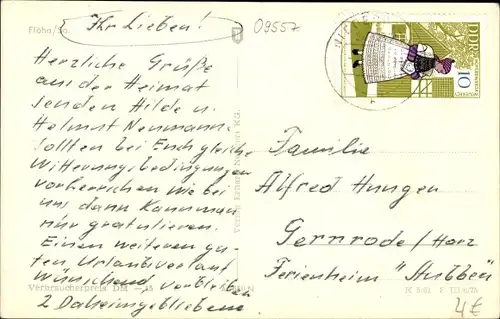 Flöha/Sa.
Ihr Lieben!
09557
Herzliche Grüße
aus der Heimat
senden Hilde u.
Helmut Neumann.
Sollten bei Euch gleiche
Witterungsbedingungen
vorherrschen wie bei
uns dann kann man
nur gratulieren.
Einen weiteren gu-
ten Urlaubsverlauf
wünschend verbleiben
2 Daheimgebliebene
Verbraucherpreis DM —,15
DDR
10
Familie
Alfred Hungen
Gernrode/Harz
Ferienheim "Stubben"
4€